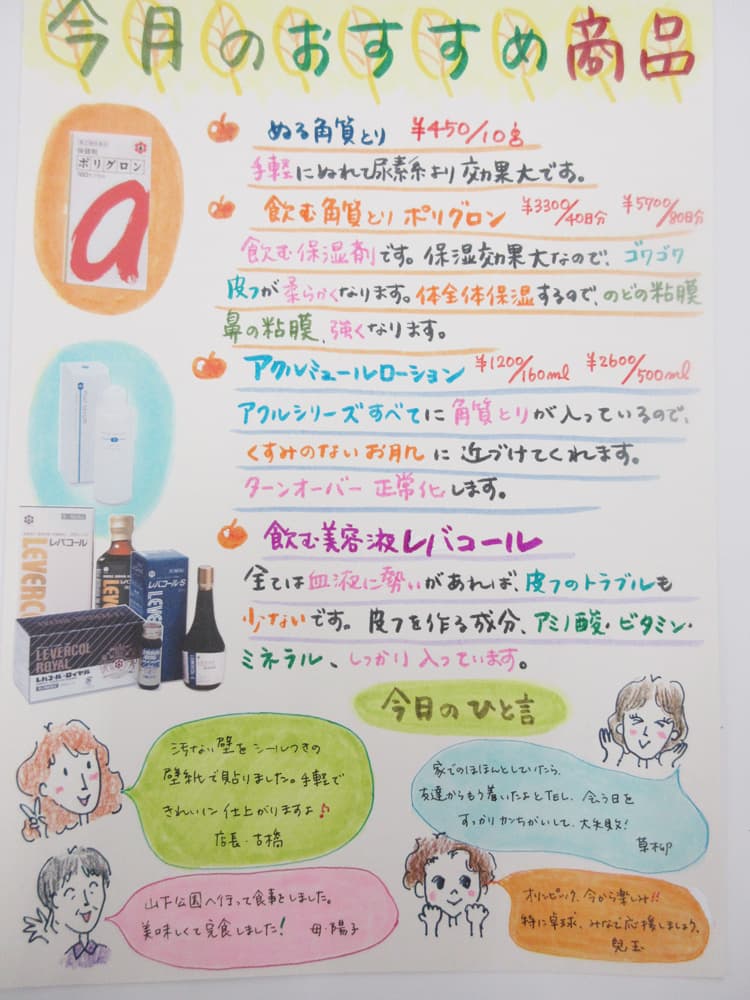 今月のおすすめ商品
ぬる角質とり ¥450/10g
手軽にぬれて尿素系より効果大です。
飲む角質とり ポリグロン ¥3300/40日分 ¥5700/80日分
飲む保湿剤です。保湿効果大なので、ゴワゴワ
皮フが柔らかくなります。体全体保湿するので、のどの粘膜
鼻の粘膜、強くなります。
ポリグロン
a
アクルミュールローション ¥1200/160ml ¥2600/500ml
アクルシリーズすべてに角質とりが入っているので、
くすみのないお肌に近づけてくれます。
ターンオーバー正常化します。
飲む美容液レバコール
全ては血液に勢いがあれば、皮フのトラブルも
少ないです。皮フを作る成分、アミノ酸・ビタミン・
ミネラル、しっかり入っています。
レバコール
LEVERCOL
レバコール-S
LEVERCOL
ROYAL
レバコール・ロイヤル
今月のひと言
汚ない壁をシールつきの
壁紙で貼りました。手軽で
きれいに仕上がりますよ♪
店長・古橋
家でのほほんとしていたら、
友達からもう着いたよとTEL、会う日を
すっかりカンちがいして、大失敗!
草柳
山下公園へ行って食事をしました。
美味しくて完食しました! 母・陽子
オリンピック、今から楽しみ!!
特に卓球、みなで応援しましょう。
児玉